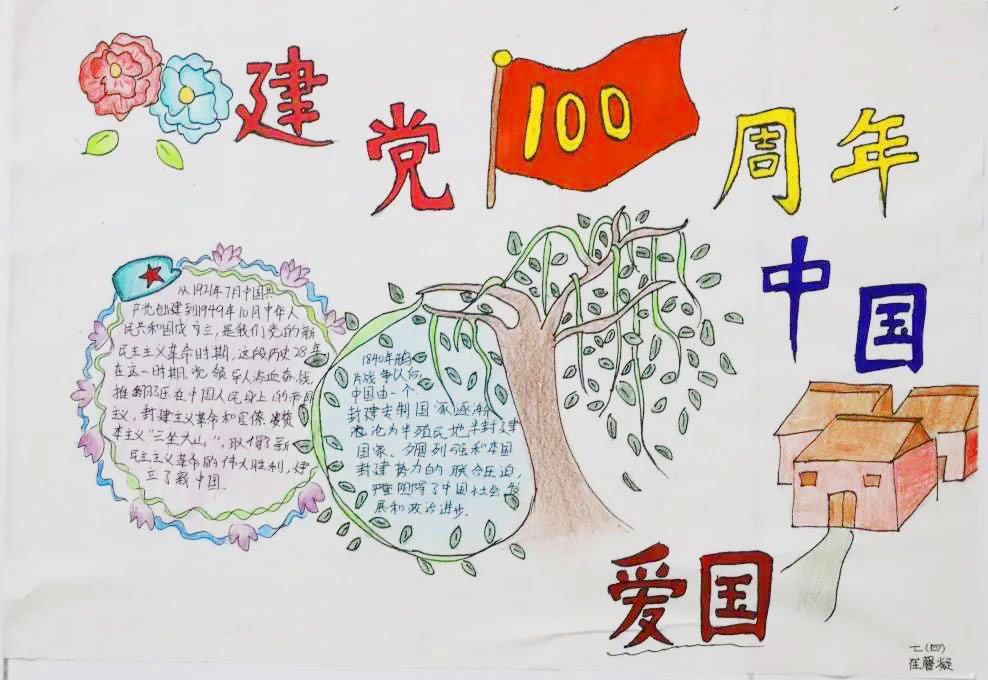 建
党
100
周年
中
国
从1921年7月中国共
产党创建到1949年10月中华人
民共和国成立,是我们党的新
民主主义革命时期,这段历史28年
在这一时期,党领导人浴血奋战,
推翻压在中国人民身上的帝国
主义,封建主义革命和官僚资
本主义"三坐大山",取得了新
民主主义革命的伟大胜利,建
立了新中国.
1840年鸦
片战争以后,
中国由一个
封建专制国家逐渐
沦为半殖民地半封建
国家、列强和本国
封建势力的联合压迫,
严重阻碍了中国社会发
展和政治进步.
爱国
七(四)
馨凝